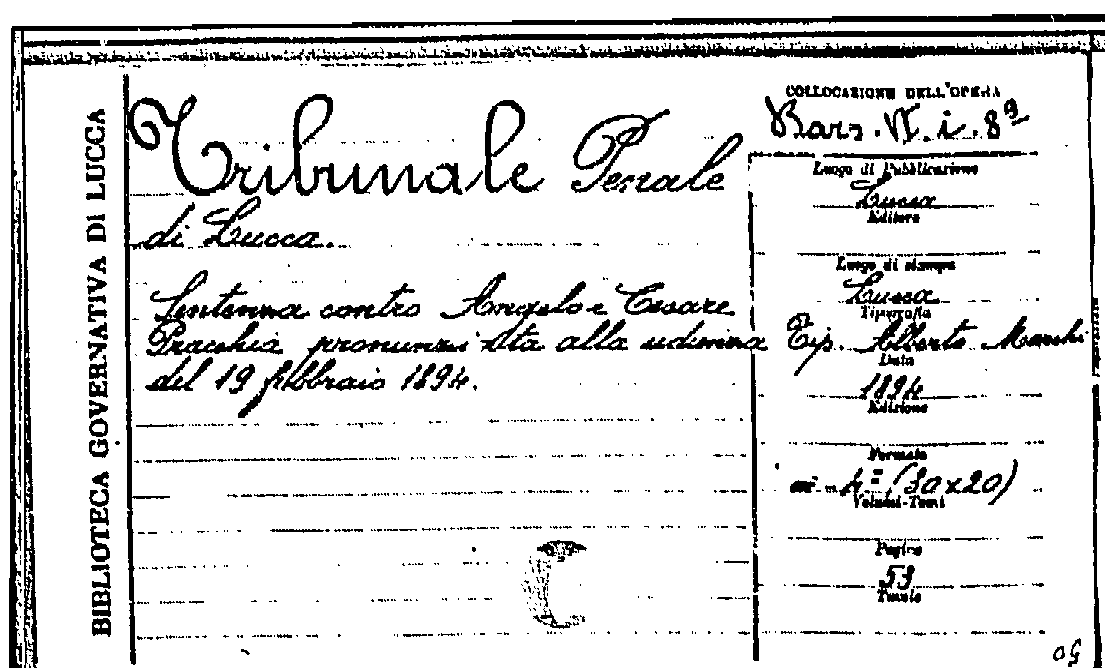 BIBLIOTECA GOVERNATIVA DI LUCCA
Tribunale Penale
di Lucca.
Sentenza contro Angelo e Cesare
Pracchia pronunziata alla udienza
del 19 febbraio 1894.
COLLOCAZIONE DELL'OPERA
Bars. VI. i. 8
Luogo di Pubblicazione
Lucca
Editore
Luogo di stampa
Lucca
Tipografia
Tip. Alberto Marchi
Data
1894
Edizione
Formato
in - 4º (30x20)
Volumi-Tomi
Pagine
53
Tavole
C